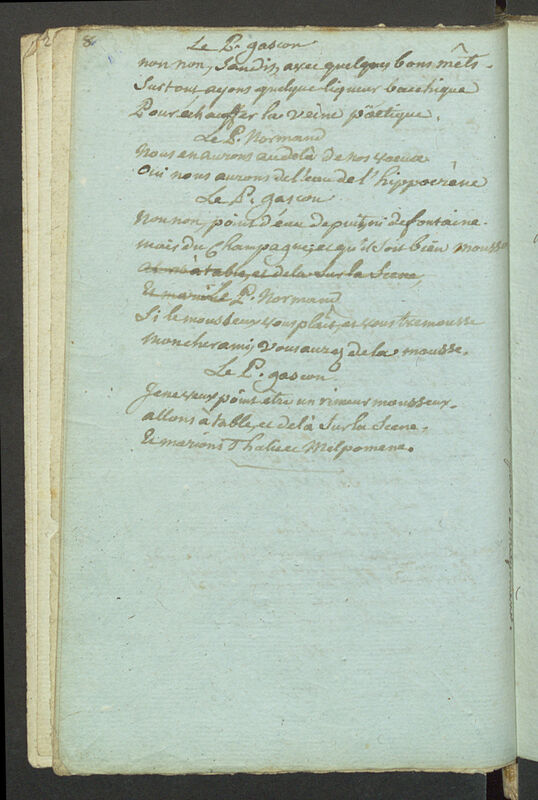 8.
Le P. gascon
non non, Sandis, avec quelques bons mêts.
Surtout ayons quelque liqueur bacchique
Pour échauffer la veine pöetique.
Le P. Normand
Nous en aurons audelà de nos voeux
Oui nous aurons de l'eau de l'hippocrène
Le P. gascon
Non non, point d'eau de puits, ni de fontaine.
mais du Champagne; et qu'il soit bien mousseux
à table, et de la Sur la Scene,
Et
Le P. Normand
Si le mousseux vous plait, et vous tremousse
Mon cher ami, vous aurez de la mousse.
Le P. gascon
Je ne veux point être un rimeur mousseux.
allons à table, et delà Sur la Scene,
Et marions Thalie et Melpomene.